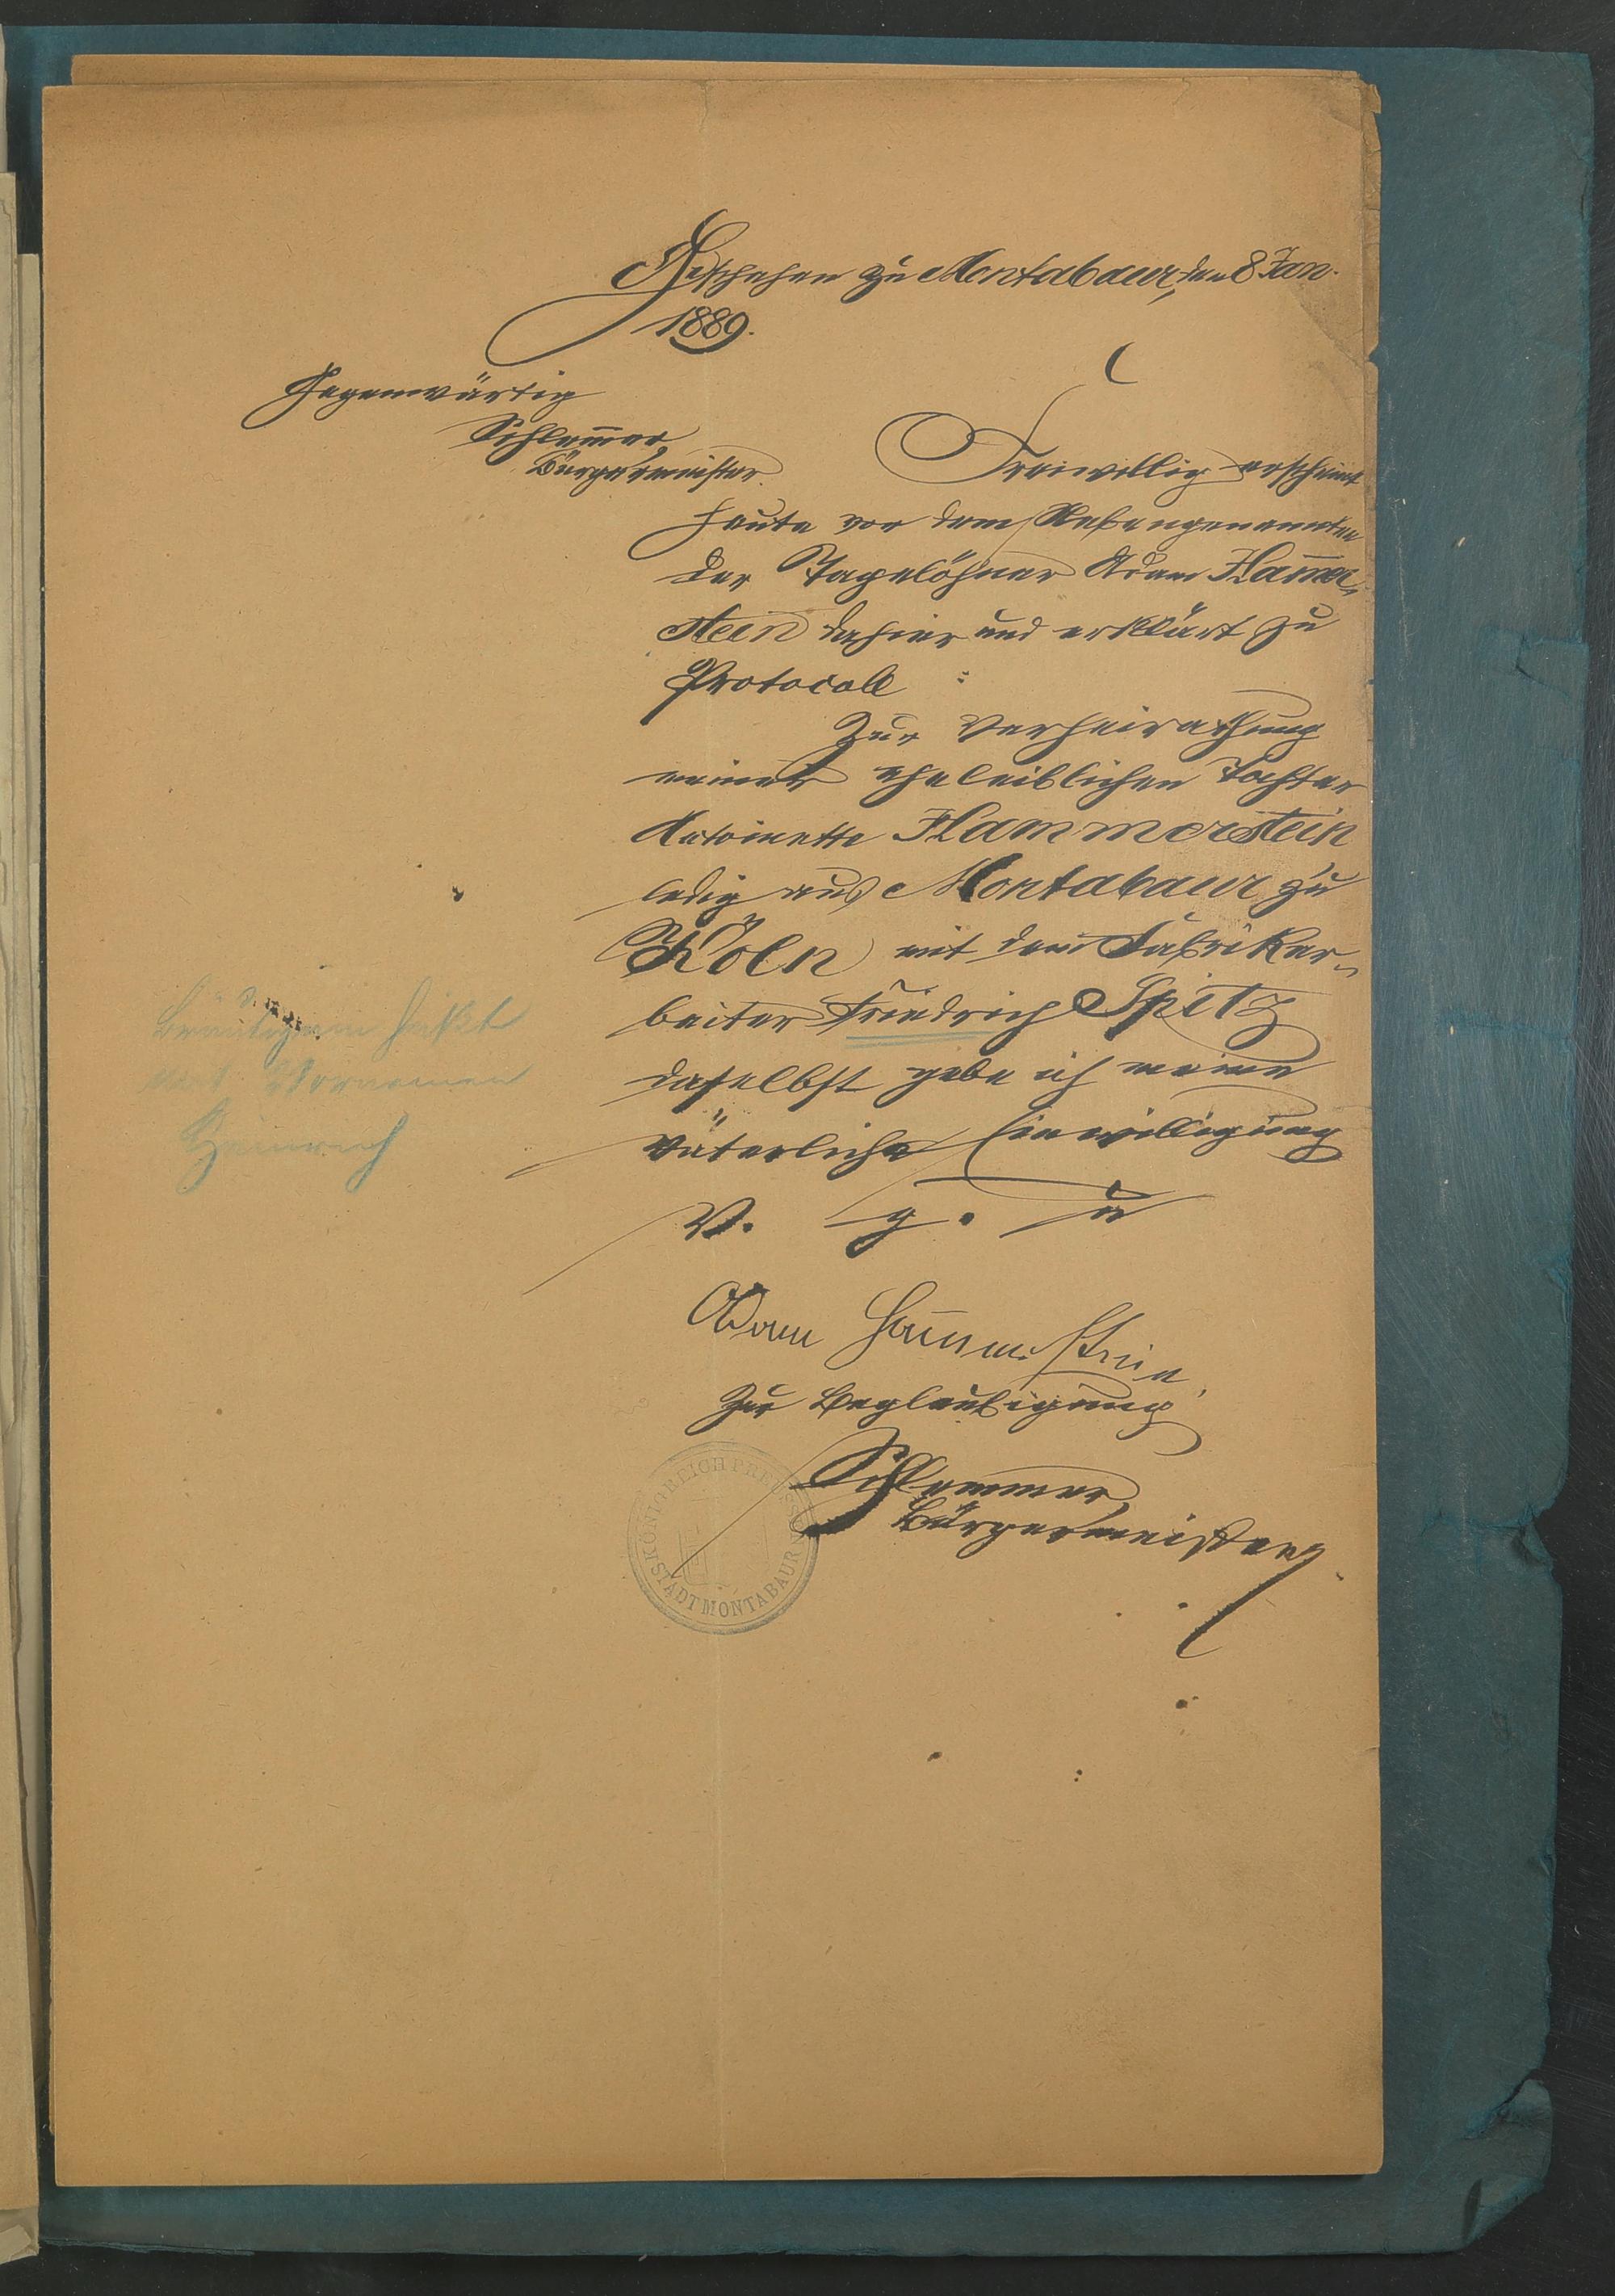 Geschehen zu Montabaur, den 8 Jan.
1889.
Gegenwärtig
Schlemmer,
Bürgermeister.
Freiwillig erscheint
heute vor dem Nebengenannten
der Tagelöhner Adam Ham̄er„
stein dahier und erklärt zu
Protocoll :
Zur Verheirathung
meiner eheleiblichen Tochter
Antoinette Hammerstein
ledig aus Montabaur zu
Köln mit dem Fabrikar„
beiter Friedrich Spitz
daselbst gebe ich meine
väterliche Einwilligung
Bräutigam heißt
mit Vornamen
Heinrich
V. g. u
Adam Hammerstein
Zur Beglaubigung
Schlemmer,
Bürgermeister
KÖNIGREICH PREUSSEN
STADT MONTABAUR